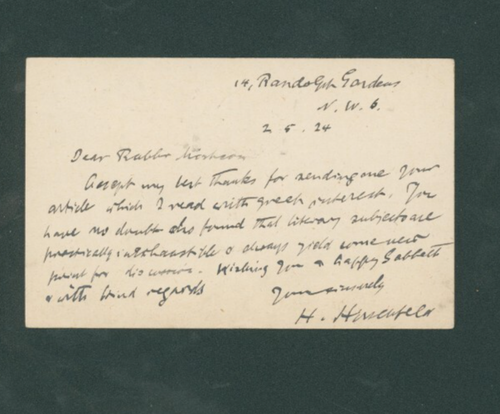 14, Randolph Gardens
N. W. 6.
2 5. 24
Dear Rabbi
Accept my best thanks for sending me your
article which I read with great interest. You
have no doubt also found that literary subjects are
practically inexhaustible & always yield some new
point for discussion. Wishing you a happy Sabbath
& with kind regards
Yours sincerely
H. Hirschfeld